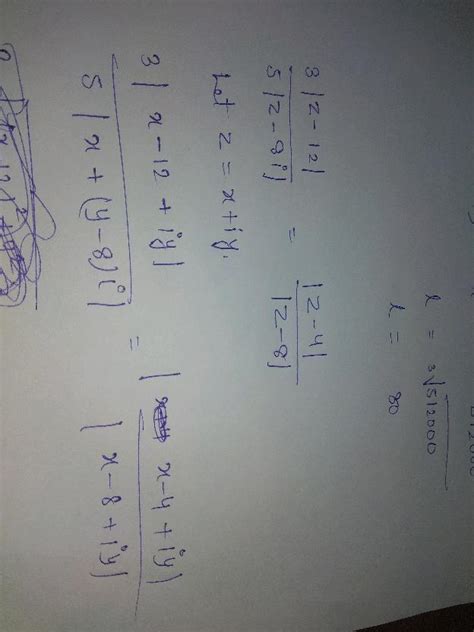 l = ∛512000
l = 80
3|z-12| / 5|z-8i| = |z-4| / |z-8|
Let z = x+iy.
3|x-12+iy| / 5|x+(y-8)i| = |x-4+iy| / |x-8+iy|